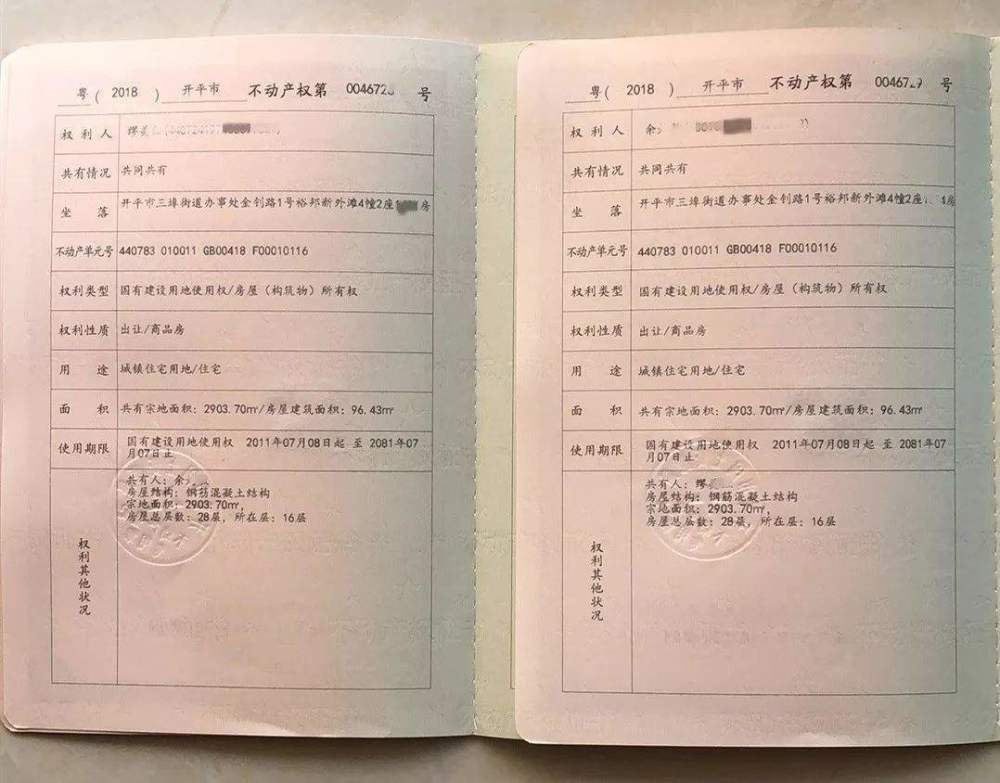 粤 ( 2018 ) 开平市 不动产权第 004672 号
权利人 缪
共有情况 共同共有
坐落 开平市三埠街道办事处金钊路1号裕邦新外滩4幢2座 房
不动产单元号 440783 010011 GB00418 F00010116
权利类型 国有建设用地使用权/房屋（构筑物）所有权
权利性质 出让/商品房
用途 城镇住宅用地/住宅
面积 共有宗地面积：2903.70㎡/房屋建筑面积：96.43㎡
使用期限 国有建设用地使用权 2011年07月08日起 至 2081年07
月07日止
权利其他状况
共有人：余
房屋结构：钢筋混凝土结构
宗地面积：2903.70㎡，
房屋总层数：28层，所在层：16层
粤 ( 2018 ) 开平市 不动产权第 00467 9 号
权利人 余
共有情况 共同共有
坐落 开平市三埠街道办事处金钊路1号裕邦新外滩4幢2座 房
不动产单元号 440783 010011 GB00418 F00010116
权利类型 国有建设用地使用权/房屋（构筑物）所有权
权利性质 出让/商品房
用途 城镇住宅用地/住宅
面积 共有宗地面积：2903.70㎡/房屋建筑面积：96.43㎡
使用期限 国有建设用地使用权 2011年07月08日起 至 2081年07
月07日止
权利其他状况
共有人：缪
房屋结构：钢筋混凝土结构
宗地面积：2903.70㎡，
房屋总层数：28层，所在层：16层